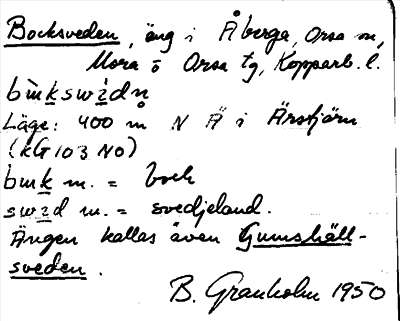 Bocksveden, äng i Åberga, Orsa sn,
Mora o Orsa tg, Kopparb. l.
Läge: 400 m N Ä i Ärstjärn
(KG103 NO)
m. = bock
m. = svedjeland.
Ängen kallas även Gumshäll-
sveden.
B. Granholm 1950